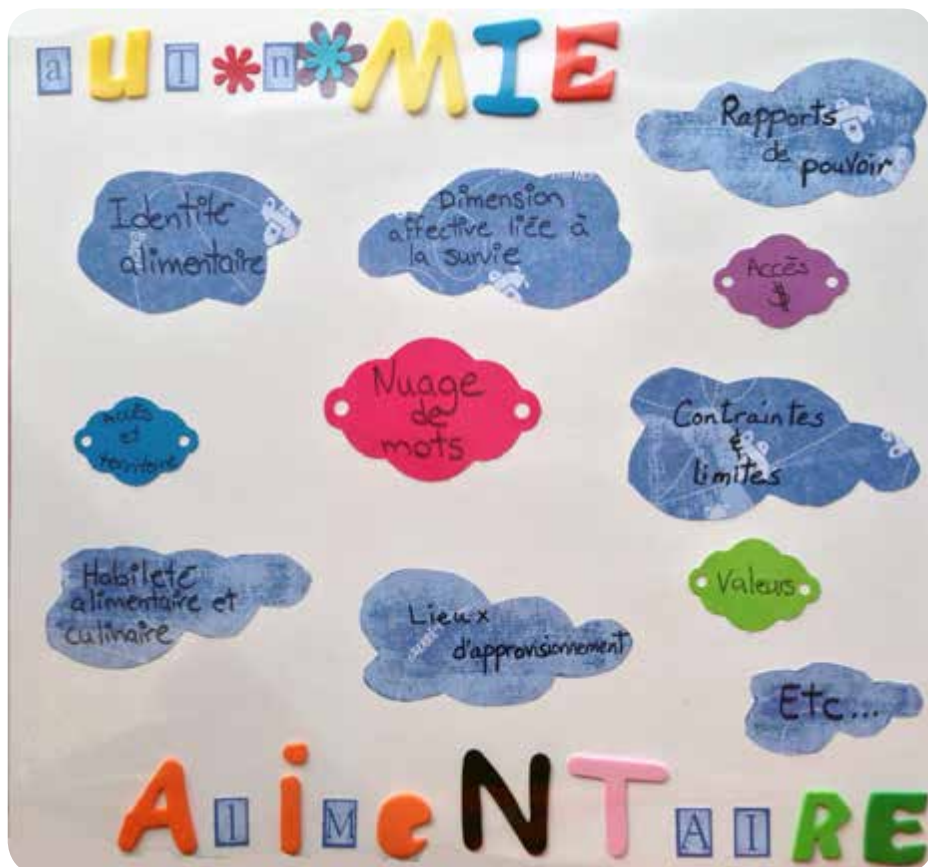 aUTnMIE
Rapports
de
pouvoir
Identité
alimentaire
Dimension
affective liée à
la survie
Accès
$
Nuage
de
mots
Accès
et
territoire
Contraintes
&
limites
Habileté
alimentaire et
culinaire
Lieux
d'approvisionnement
Valeurs
Etc...
AliMeNTAIRE